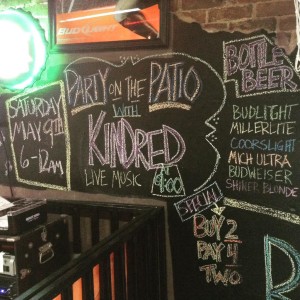 BUDLIGHT
SATURDAY
MAY 9TH
6-12AM
PARTY ON THE PATIO
WITH
KINDRED
LIVE MUSIC 9:00
BOTTLE
BEER
BUDLIGHT
MILLERLITE
COORSLIGHT
MICH ULTRA
BUDWEISER
SHINER BLONDE
SPECIAL
BUY 2
PAY 4
TWO